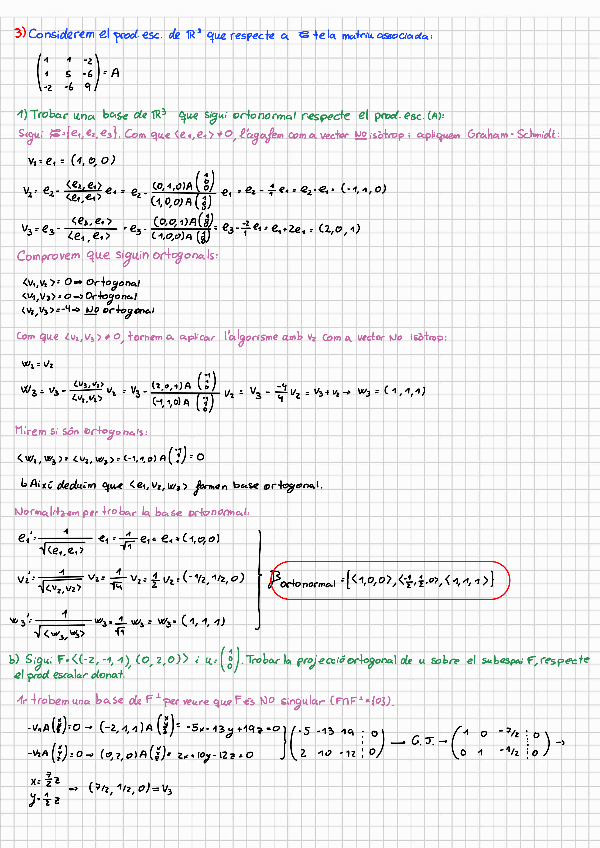 3) Considerem el prod. esc. de ℝ³ que respecte a ℰ té la matriu associada:
( 1 1 -2
1 5 -6
-2 -6 9 ) = A
1) Trobar una base de ℝ³ que sigui ortonormal respecte el prod. esc. (A):
Sigui ℰ={e₁, e₂, e₃}. Com que <e₁, e₁> ≠ 0, l'agafem com a vector NO isòtrop i apliquem Graham-Schmidt:
v₁ = e₁ = (1, 0, 0)
v₂ = e₂ - <e₂, e₁>/<e₁, e₁> e₁ = e₂ - (0,1,0)A(1 0 0)/(1,0,0)A(1 0 0) e₁ = e₂ - 1/1 e₁ = e₂ - e₁ = (-1, 1, 0)
v₃ = e₃ - <e₃, e₁>/<e₁, e₁> = e₃ - (0,0,1)A(1 0 0)/(1,0,0)A(1 0 0) = e₃ - -2/1 e₁ = e₃ + 2e₁ = (2, 0, 1)
Comprovem que siguin ortogonals:
<v₁, v₂> = 0 → Ortogonal
<v₁, v₃> = 0 → Ortogonal
<v₂, v₃> = -4 → NO ortogonal
Com que <v₂, v₃> ≠ 0, tornem a aplicar l'algorisme amb v₂ com a vector NO isòtrop:
w₂ = v₂
w₃ = v₃ - <v₃, v₂>/<v₂, v₂> v₂ = v₃ - (2,0,1)A(-1 1 0)/(-1,1,0)A(-1 1 0) v₂ = v₃ - -4/4 v₂ = v₃ + v₂ → w₃ = (1, 1, 1)
Mirem si són ortogonals:
<w₂, w₃> = <v₂, w₃> = (-1, 1, 0) A (1 1 1) = 0
↳ Així deduim que <e₁, v₂, w₃> formen base ortogonal.
Normalitzem per trobar la base ortonormal:
e₁' = 1/√<e₁, e₁> e₁ = 1/√1 e₁ = e₁ = (1, 0, 0)
v₂' = 1/√<v₂, v₂> v₂ = 1/√4 v₂ = 1/2 v₂ = (-1/2, 1/2, 0) β ortonormal = {<1,0,0>, <-1/2, 1/2, 0>, <1, 1, 1>}
w₃' = 1/√<w₃, w₃> w₃ = 1/√1 w₃ = w₃ = (1, 1, 1)
b) Sigui F = <(-2, -1, 1), (0, 2, 0)> i u = (1 0 0). Trobar la projecció ortogonal de u sobre el subespai F, respecte
el prod escalar donat.
1r trobem una base de F⊥ per veure que F és NO singular (F∩F⊥ = {0}).
-v₁A(x y z) = 0 → (-2, 1, 1) A (x y z) = -5x - 13y + 19z = 0 } ( -5 -13 19 | 0 — G.J. → ( 1 0 -7/2 | 0 →
-v₂A(x y z) = 0 → (0, 2, 0) A (x y z) = 2x + 10y - 12z = 0 2 10 -12 | 0 ) 0 1 -1/2 | 0 )
x = 7/2 z
y = 1/2 z → (7/2, 1/2, 0) = v₃